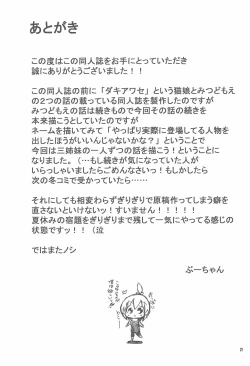 あとがき
この度はこの同人誌をお手にとっていただき
誠にありがとうございました！！
この同人誌の前に「ダキアワセ」という猫娘とみつどもえ
の２つの話の載っている同人誌を製作したのですが
みつどもえの話は続きもので今回その話の続きを
本来描こうとしていたのですが
ネームを描いてみて「やっぱり実際に登場してる人物を
出したほうがいいんじゃないかな？」ということで
今回は三姉妹の一人ずつの話を描こう！ということに
なりました。（…もし続きが気になっていた人が
いらっしゃいましたらごめんなさいっ！もしかしたら
次の冬コミで受かっていたら……
それにしても相変わらずぎりぎりで原稿作ってしまう癖を
直さないといけないッ！すいません！！！！！
夏休みの宿題をぎりぎりまで残して一気にやってる感じの
状態ですッ！！（泣
ではまたノシ
ぷーちゃん